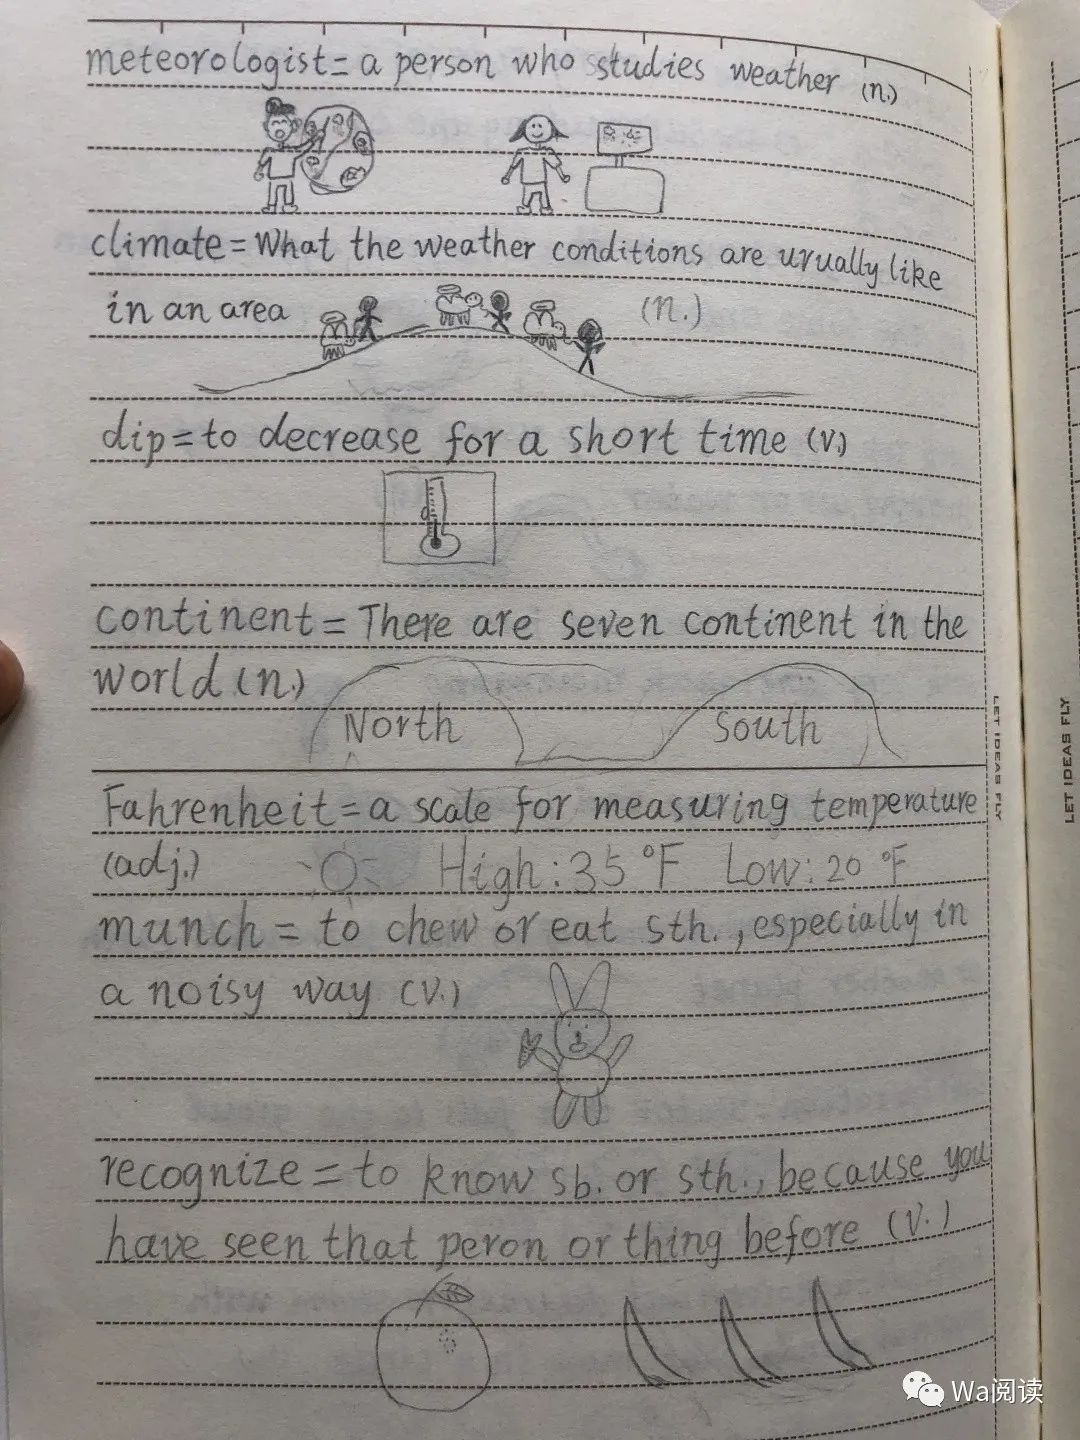 meteorologist = a person who studies weather (n.)
climate = What the weather conditions are urually like
in an area (n.)
dip = to decrease for a short time (v.)
continent = There are seven continent in the
world (n.)
North South
Fahrenheit = a scale for measuring temperature
(adj.) High : 35 °F Low : 20 °F
munch = to chew or eat sth. , especially in
a noisy way (v.)
recognize = to know sb. or sth. , because you
have seen that peron or thing before (v.)
LET IDEAS FLY
LET IDEAS FLY
Wa阅读